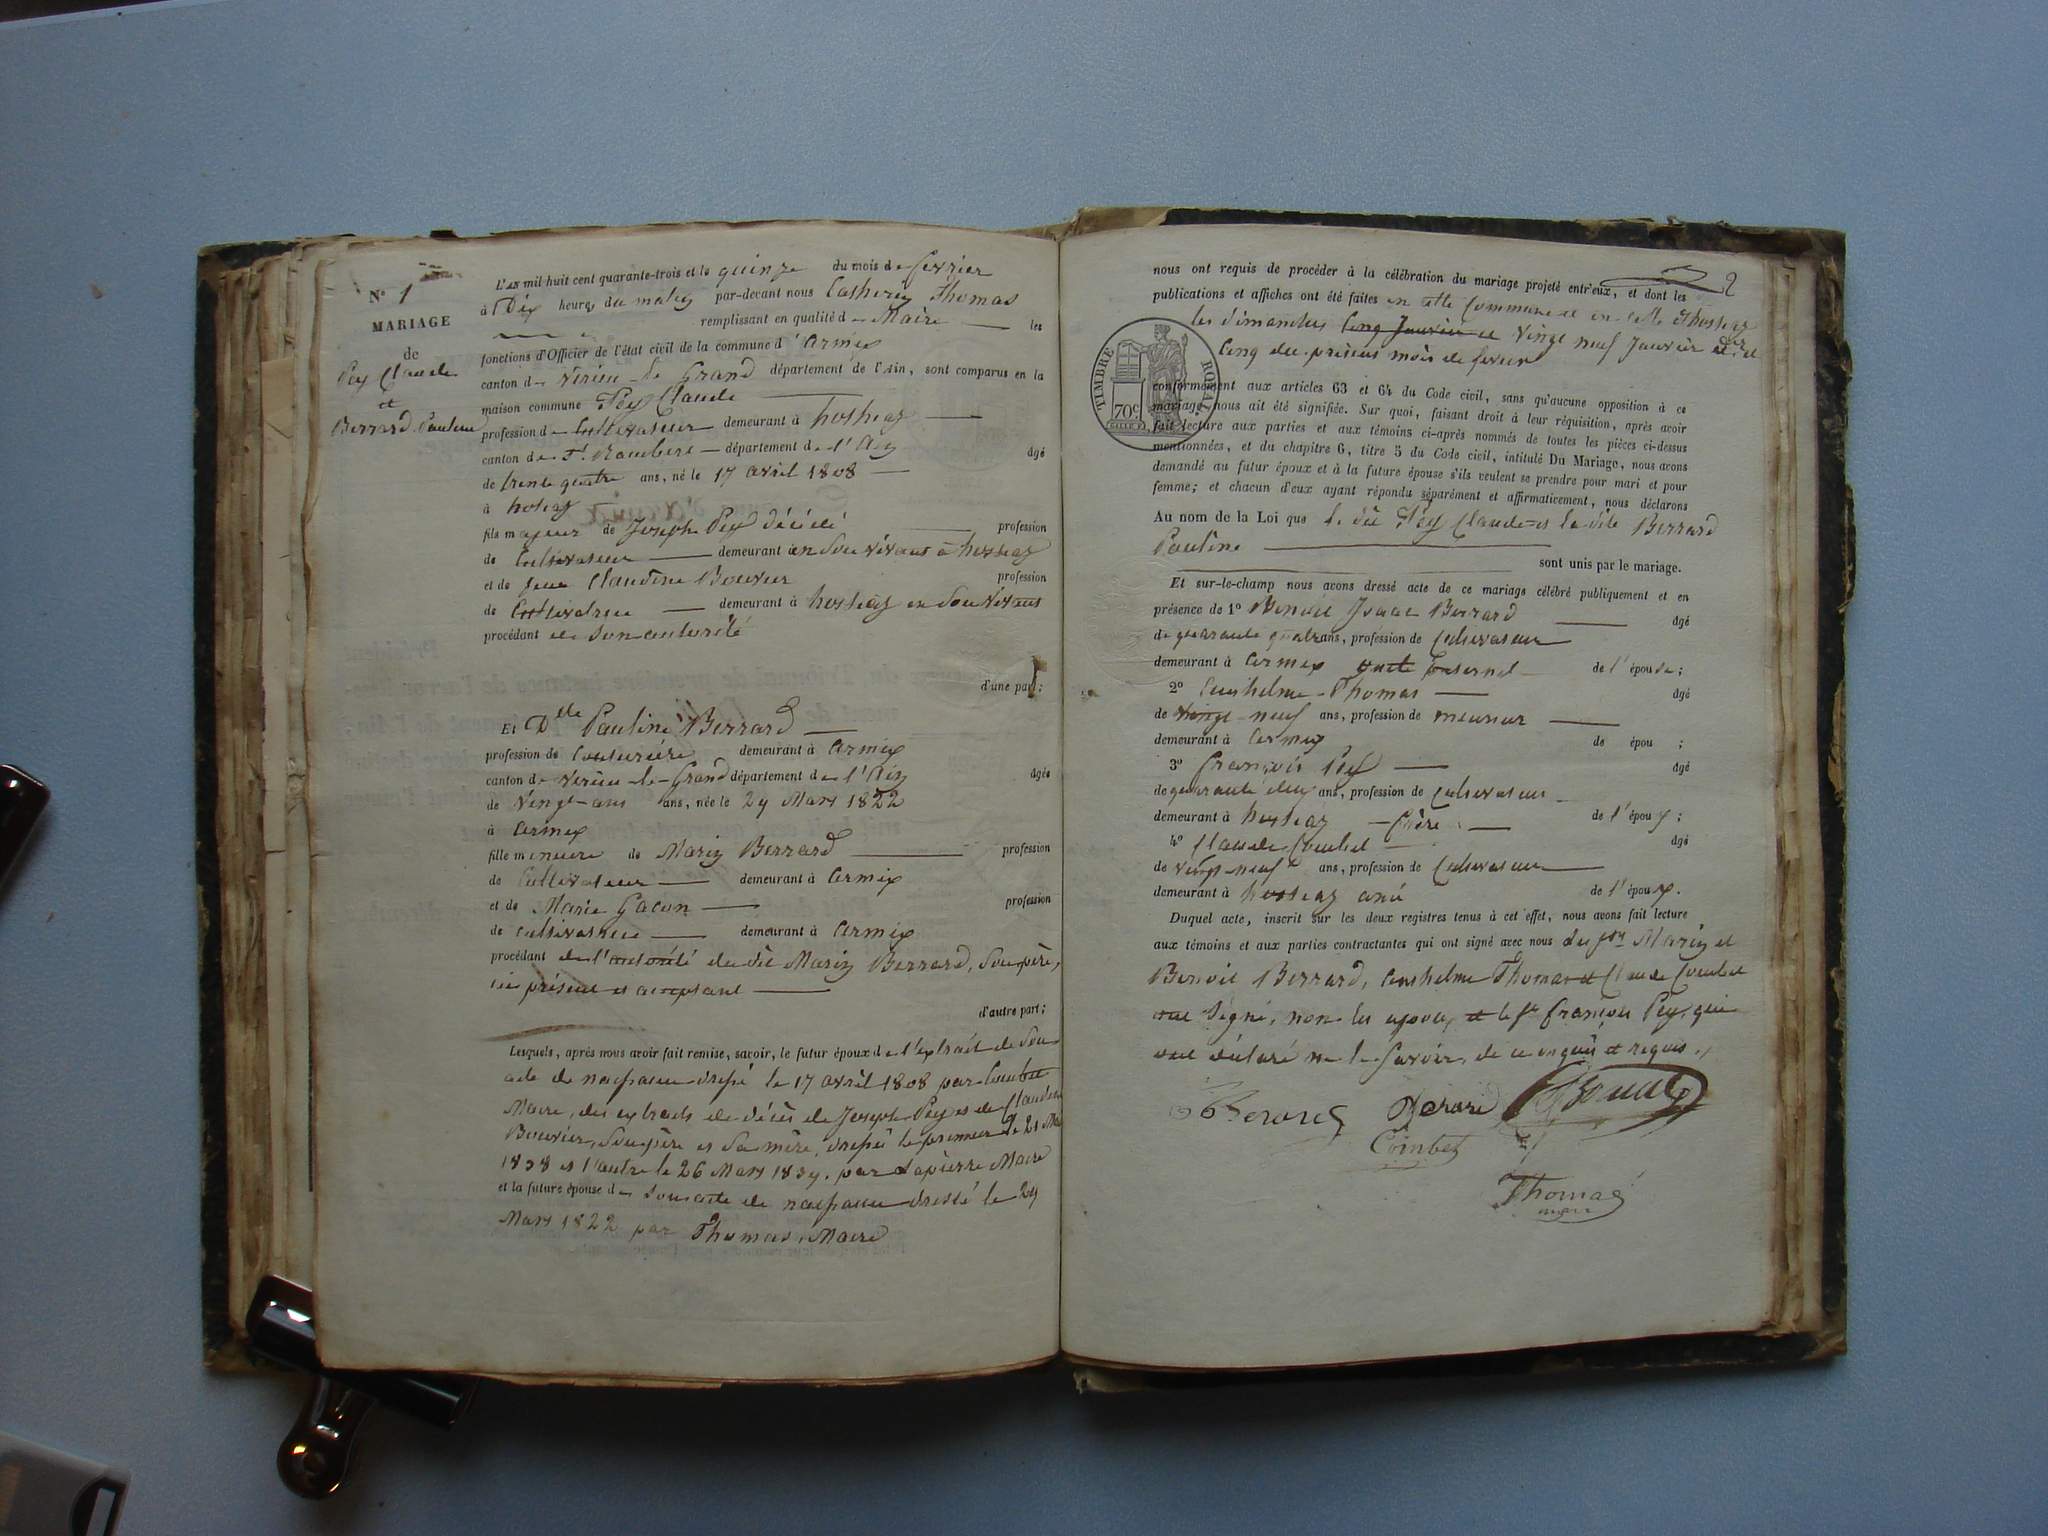 N° 1
MARIAGE
de
Pey Claude
et
Berrard Pauline
L'AN mil huit cent quarante-trois et le quinze du mois de fevrier
à Dix heures du matin par-devant nous Thomas
remplissant en qualité de Maire les
fonctions d'Officier de l'état civil de la commune d'armix
canton de Virieu-le-Grand département de l'Ain, sont comparus en la
maison commune Pey Claude
profession de Cultivateur demeurant à hostiaz
canton de St. Rambert département de l'Ain âgé
de trente quatre ans, né le 17 avril 1808
à hostiaz
fils majeur de Joseph Pey décédé profession
de Cultivateur demeurant en son vivant à hostiaz
et de feue Claudine Bouvier profession
de Cultivatrice demeurant à hostiaz en son vivant
procédant de son autorité
d'une part;
Et Dlle Pauline Berrard
profession de Couturière demeurant à armix
canton de Virieu-le-Grand département de l'Ain âgée
de vingt-ans ans, née le 24 Mars 1822
à armix
fille mineure de Marin Berrard profession
de Cultivateur demeurant à armix
et de Marie Gacon profession
de cultivatrice demeurant à armix
procédant de l'autorité du dit Marin Berrard, son père,
ici présent et acceptant
d'autre part;
Lesquels, après nous avoir fait remise, savoir, le futur époux de l'extrait de son
acte de naissance dressé le 17 avril 1808 par Combet
Maire, des extraits de décès de Joseph Pey et de Claudine
Bouvier, son père et sa mère, dressé le premier le 21 Mai
1838 et l'autre le 26 Mars 1834, par Lapierre Maire
et la future épouse de son acte de naissance dressé le 24
Mars 1822 par Thomas, Maire
2
nous ont requis de procéder à la célébration du mariage projeté entr'eux, et dont les
publications et affiches ont été faites en cette Commune et en celle d'hostiaz
les dimanches Cinq Janvier et vingt neuf Janvier et
Cinq du présent mois de fevrier
TIMBRE ROYAL
70c
conformément aux articles 63 et 64 du Code civil, sans qu'aucune opposition à ce
mariage nous ait été signifiée. Sur quoi, faisant droit à leur réquisition, après avoir
fait lecture aux parties et aux témoins ci-après nommés de toutes les pièces ci-dessus
mentionnées, et du chapitre 6, titre 5 du Code civil, intitulé Du Mariage, nous avons
demandé au futur époux et à la future épouse s'ils veulent se prendre pour mari et pour
femme; et chacun d'eux ayant répondu séparément et affirmativement, nous déclarons
Au nom de la Loi que le dit Pey Claude et la dite Berrard
Pauline
sont unis par le mariage.
Et sur-le-champ nous avons dressé acte de ce mariage célébré publiquement et en
présence de 1° Benoit Isaac Berrard âgé
de quarante quatre ans, profession de Cultivateur
demeurant à armix oncle paternel de l'épouse;
2° Anthelme Thomas âgé
de vingt-neuf ans, profession de meunier
demeurant à armix de épou ;
3° François Pey âgé
de quarante deux ans, profession de Cultivateur
demeurant à hostiaz frère de l'époux;
4° Claude Combet âgé
de vingt-neuf ans, profession de Cultivateur
demeurant à hostiaz ami de l'époux.
Duquel acte, inscrit sur les deux registres tenus à cet effet, nous avons fait lecture
aux témoins et aux parties contractantes qui ont signé avec nous Marin et
Benoit Berrard, anthelme Thomas et Claude Combet
ont signé, non les époux, et le Sr françois Pey, qui
ont déclaré ne le savoir, de ce enquis et requis.
Berard
Combet
Thomas
maire